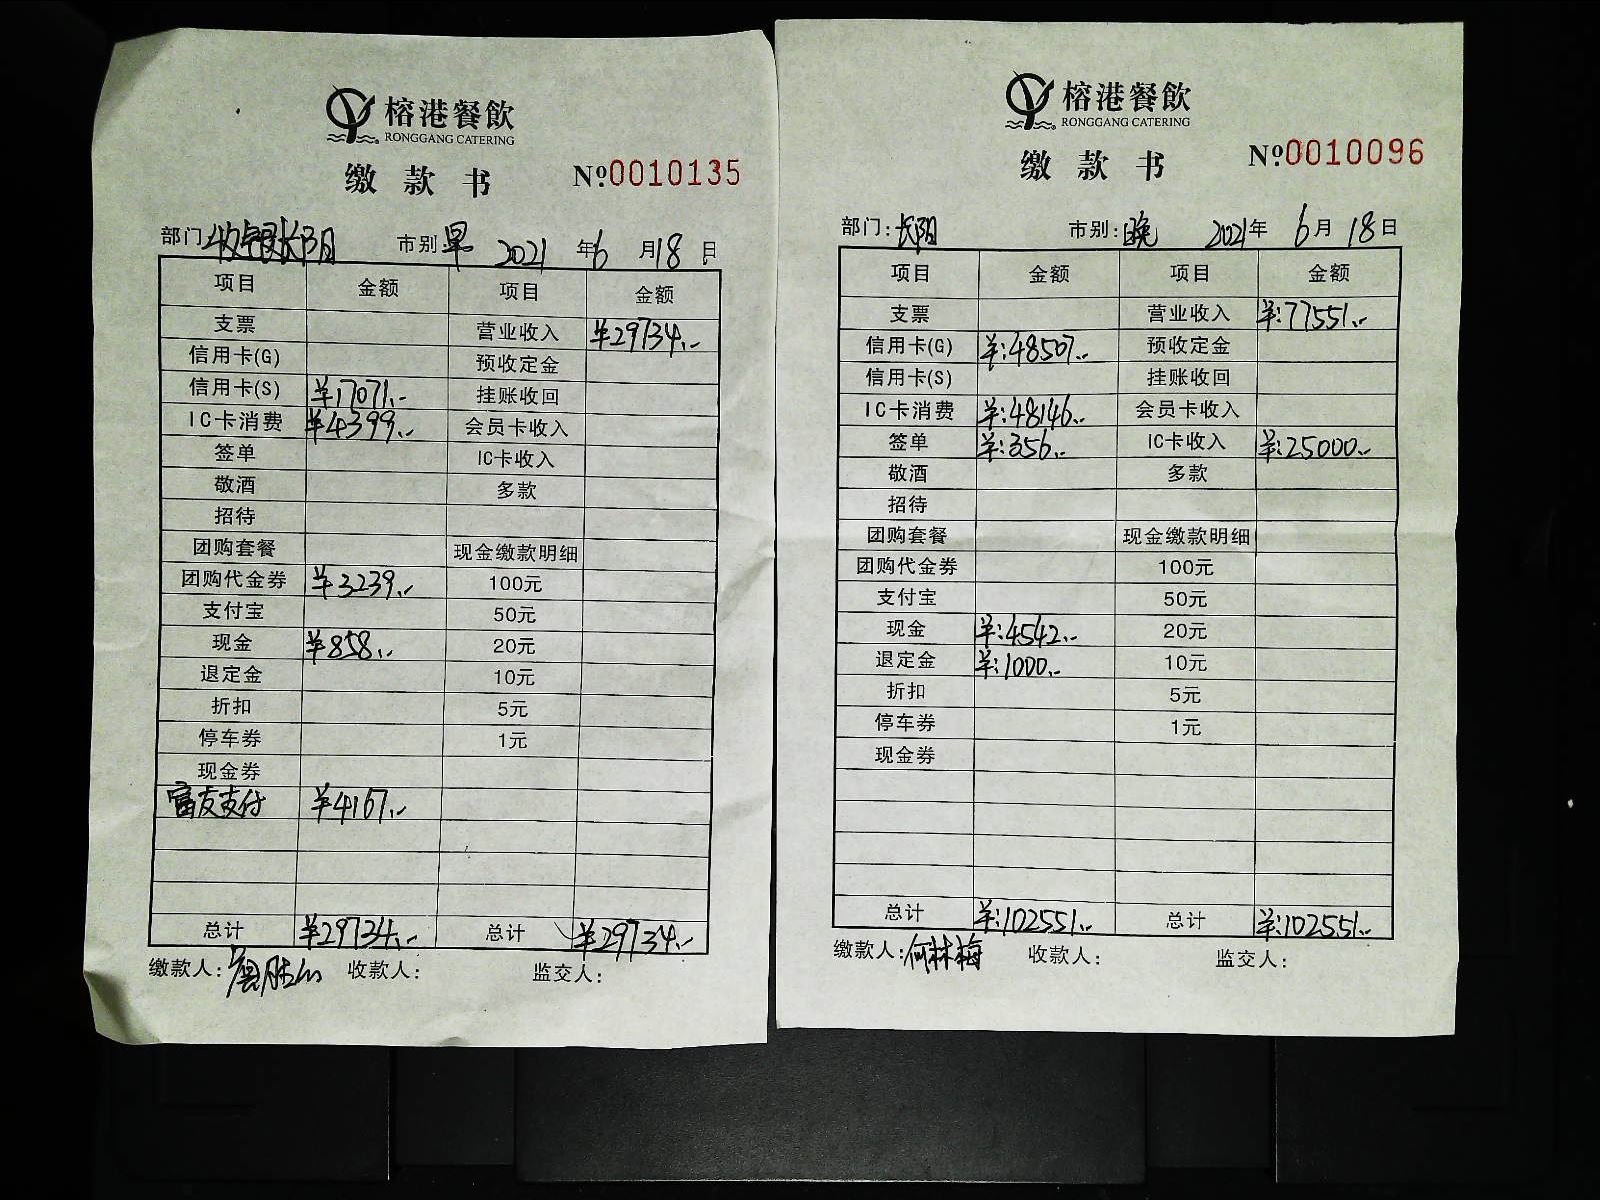 榕港餐飲
RONGGANG CATERING
缴款书 №0010135
部门 收银长阳 市别 早 2021年6月18日
项目 金额 项目 金额
支票 营业收入 ¥29734.-
信用卡(G) 预收定金
信用卡(S) ¥17071.- 挂账收回
IC卡消费 ¥4399.- 会员卡收入
签单 IC卡收入
敬酒 多款
招待
团购套餐 现金缴款明细
团购代金券 ¥3239.- 100元
支付宝 50元
现金 ¥858.- 20元
退定金 10元
折扣 5元
停车券 1元
现金券
富友支付 ¥4167.-
总计 ¥29734.- 总计 ¥29734.-
缴款人: 收款人: 监交人:
榕港餐飲
RONGGANG CATERING
缴款书 №0010096
部门: 长阳 市别: 晚 2021年6月18日
项目 金额 项目 金额
支票 营业收入 ¥:77551.-
信用卡(G) ¥:48507.- 预收定金
信用卡(S) 挂账收回
IC卡消费 ¥:48146.- 会员卡收入
签单 ¥:356.- IC卡收入 ¥:25000.-
敬酒 多款
招待
团购套餐 现金缴款明细
团购代金券 100元
支付宝 50元
现金 ¥:4542.- 20元
退定金 ¥:1000.- 10元
折扣 5元
停车券 1元
现金券
总计 ¥:102551.- 总计 ¥:102551.-
缴款人: 何林梅 收款人: 监交人: